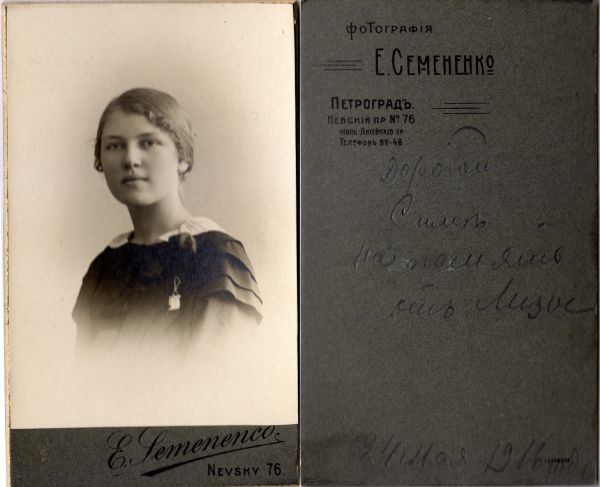 E. Semenenco.
NEVSKY 76.
фоТОГРАФІЯ
Е. СЕМЕНЕНКО
ПЕТРОГРАДЪ.
НЕВСКІЙ ПР. № 76
УГОЛЪ ЛИТЕЙНАГО ПР.
ТЕЛЕФОНЪ 92-46
Дорогой
Симѣ
на память
отъ Лизы
24 мая 1916